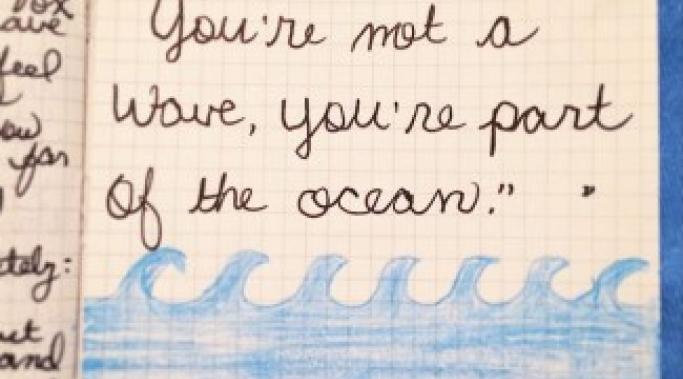 ave
feel
ow
far
tely:
and
You're not a
Wave, you're part
Of the ocean."